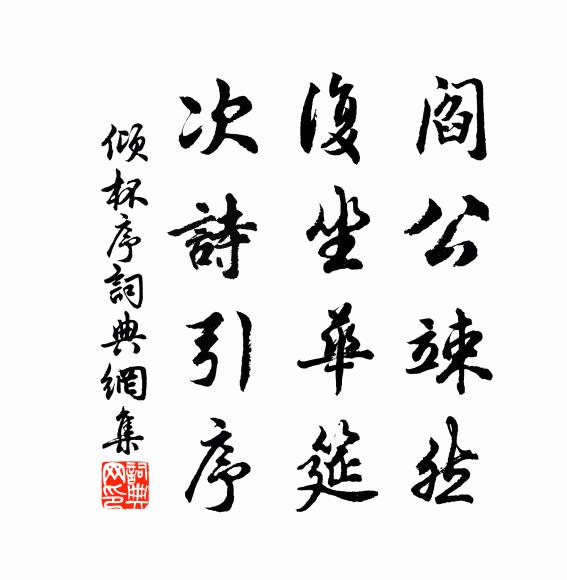 閻公竦然
復坐華筵
次詩引序
傾杯序詞典網集
詞典网印